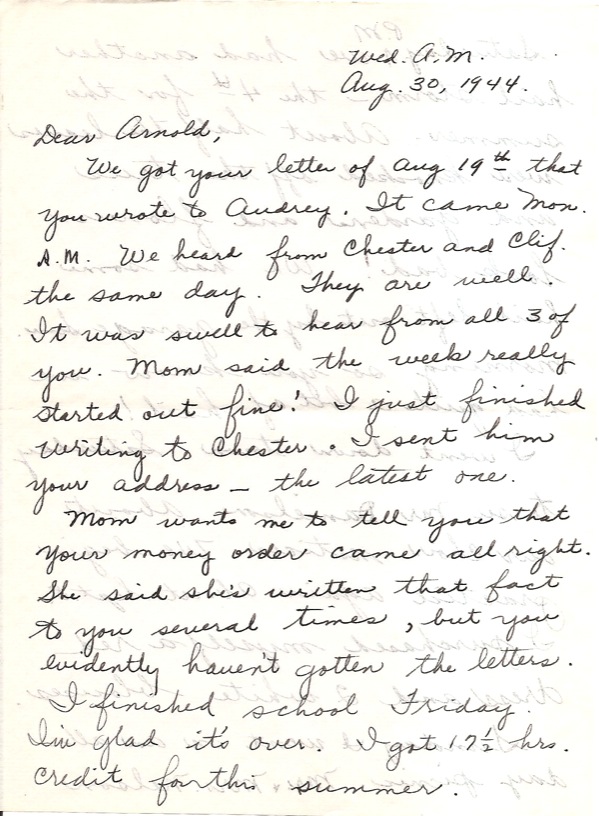 Wed. A.M.
Aug. 30, 1944.
Dear Arnold,
We got your letter of Aug 19th that
you wrote to Audrey. It came Mon.
A.M. We heard from Chester and Clif.
the same day. They are well.
It was swell to hear from all 3 of
you. Mom said the week really
started out fine! I just finished
writing to Chester. I sent him
your address – the latest one.
Mom wants me to tell you that
your money order came all right.
She said she's written that fact
to you several times, but you
evidently haven't gotten the letters.
I finished school Friday.
I'm glad it's over. I got 17½ hrs.
credit for this summer.